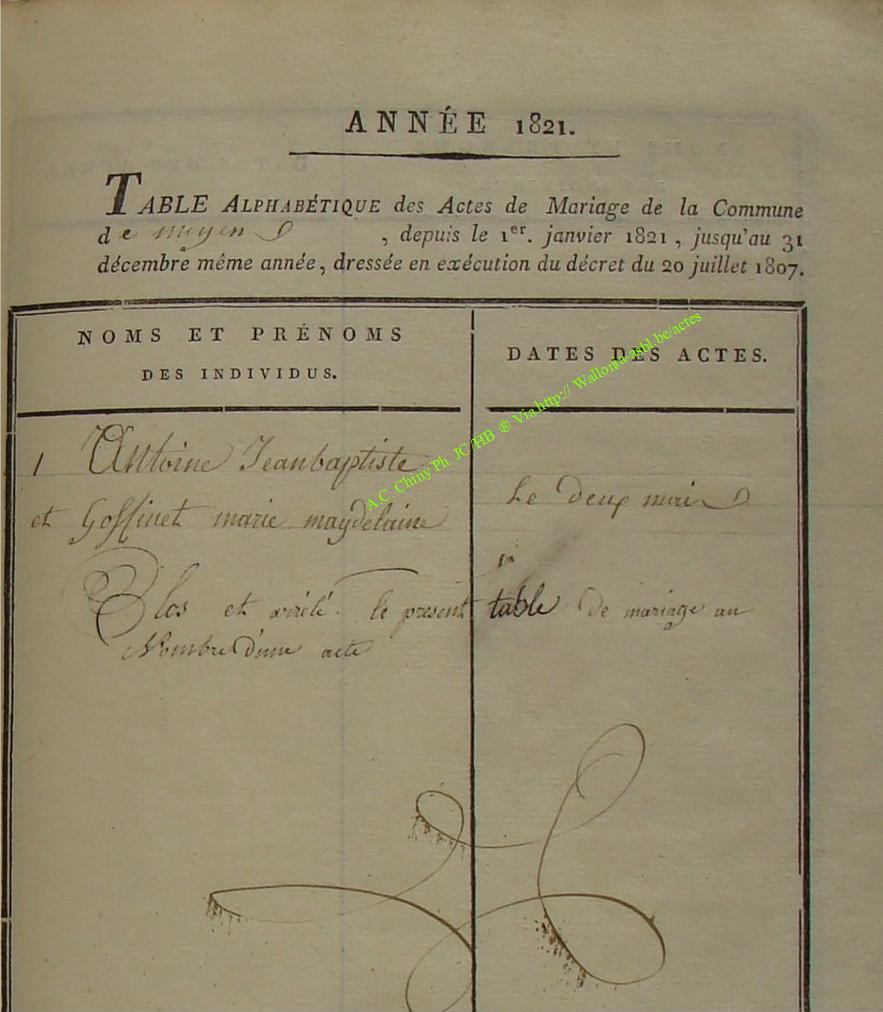 ANNÉE 1821.
TABLE ALPHABÉTIQUE des Actes de Mariage de la Commune
de moyen , depuis le 1er. janvier 1821, jusqu'au 31
décembre même année, dressée en exécution du décret du 20 juillet 1807.
NOMS ET PRÉNOMS
DES INDIVIDUS.
DATES DES ACTES.
1 Antoine Jeanbaptiste
et Goffinet marie magdelaine
Le deux mai
Clos et arrêté le present table de mariage au
Nombre d'une acte
A.C. Chiny Ph. JC/HB ® Via.http:// Wallonia-asbl.be/actes